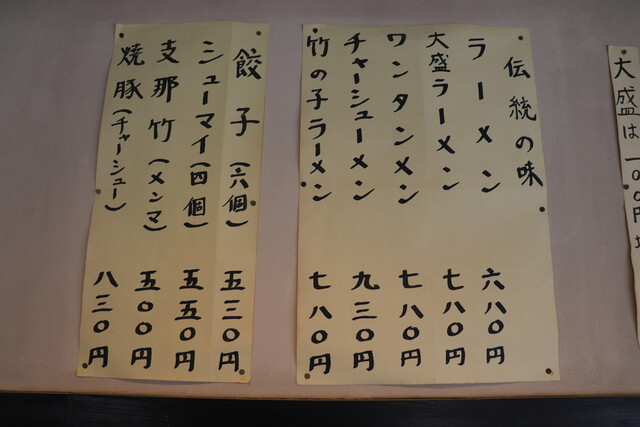 大盛は一〇〇円
伝統の味
ラーメン 六八〇円
大盛ラーメン 七八〇円
ワンタンメン 七八〇円
チャーシューメン 九三〇円
竹の子ラーメン 七八〇円
餃子(六個) 五三〇円
シューマイ(四個) 五五〇円
支那竹(メンマ) 五〇〇円
焼豚(チャーシュー) 八三〇円